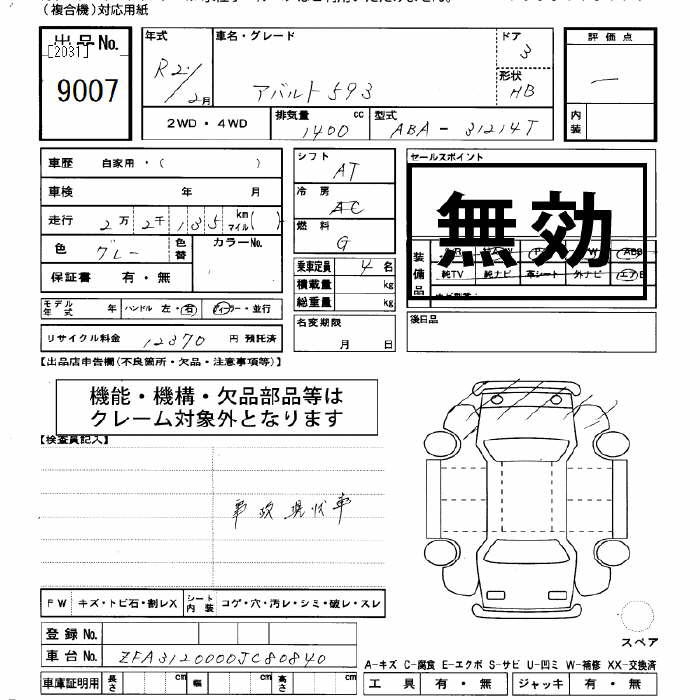 (複合機)対応用紙
出品No. [2031] 9007
年式 R2/2月
車名・グレード アバルト593
ドア 3
形状 HB
2WD・4WD
排気量 1400 cc
型式 ABA-31214T
評価点 —
内装
車歴 自家用・( )
車検 年 月
走行 2万2千135 km マイル( )
色 グレー 色替 カラーNo.
保証書 有・無
モデル年式 年 ハンドル 左・右 ディーラー・並行
リサイクル料金 12870 円 預託済
シフト AT
冷房 AC
燃料 G
乗車定員 4 名
積載量 kg
総重量 kg
名変期限 月 日
セールスポイント
無効
装備品 S/R P W ABS
純TV 純ナビ 革シート 外ナビ エアB
後日品
【出品店申告欄(不良箇所・欠品・注意事項等)】
機能・機構・欠品部品等は
クレーム対象外となります
【検査員記入】
事故現状車
FW キズ・トビ石・割レX シート内装 コゲ・穴・汚レ・シミ・破レ・スレ
登録No.
車台No. ZFA3120000JC80840
車庫証明用 長さ cm 幅 cm 高さ cm
スペア
A-キズ C-腐食 E-エクボ S-サビ U-凹ミ W-補修 XX-交換済
工具 有・無 ジャッキ 有・無